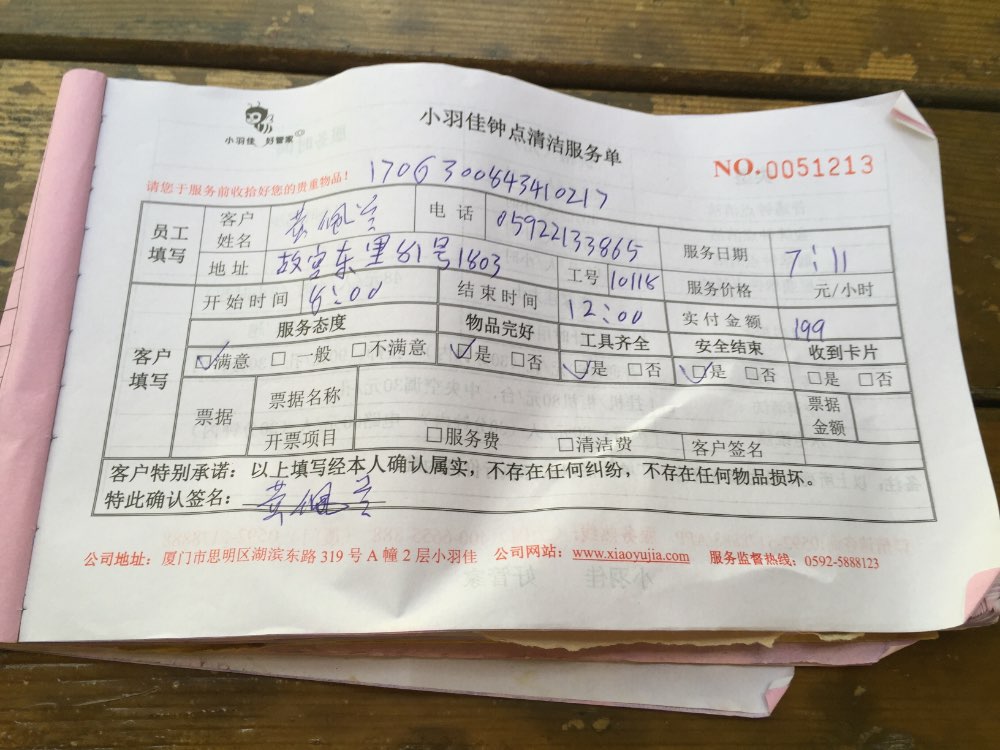 小羽佳 好管家
小羽佳钟点清洁服务单
NO.0051213
请您于服务前收拾好您的贵重物品！
1706300843410217
员工填写 客户姓名 黄佩兰 电话 05922133865 服务日期 7:11
地址 故宫东里81号1803 工号 10118 服务价格 元/小时
客户填写 开始时间 8:00 结束时间 12:00 实付金额 199
服务态度 物品完好 工具齐全 安全结束 收到卡片
☑满意 □一般 □不满意 ☑是 □否 ☑是 □否 ☑是 □否 □是 □否
票据 票据名称 票据金额
开票项目 □服务费 □清洁费 客户签名
客户特别承诺：以上填写经本人确认属实，不存在任何纠纷，不存在任何物品损坏。
特此确认签名：黄佩兰
公司地址：厦门市思明区湖滨东路 319 号 A 幢 2 层小羽佳 公司网站：www.xiaoyujia.com 服务监督热线：0592-5888123